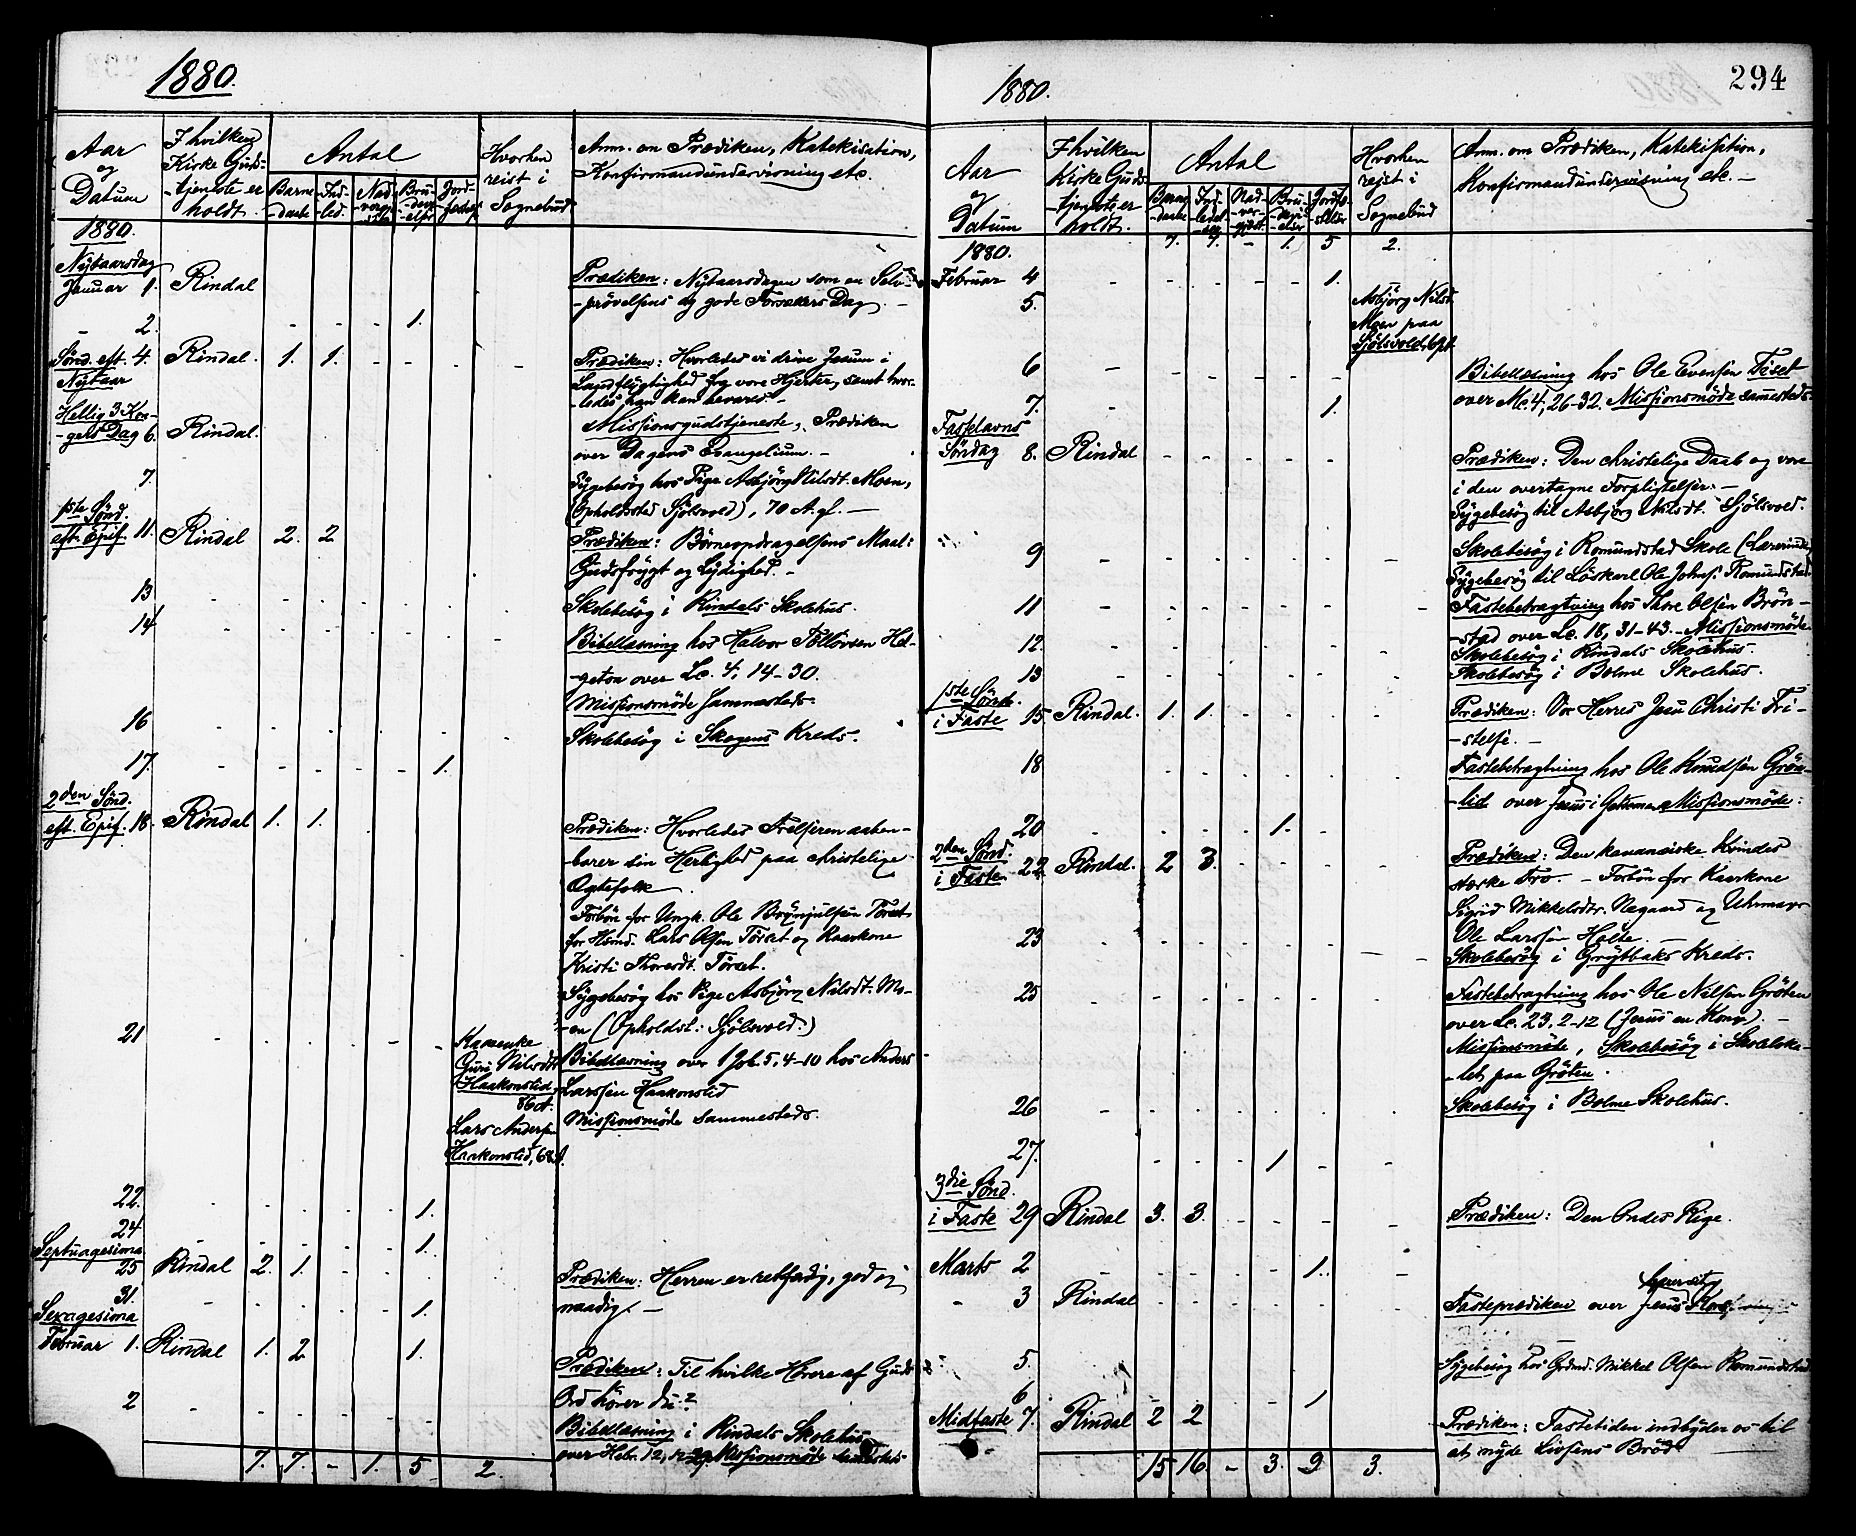 1880.
Aar og Datum
I hvilken Kirke Guds-tjeneste er holdt.
Antal
Barne-daab
Ind-led.
Nad-verg.
Bru-dev.
Jord-
Hvorhen reist i Sognebud
Anm. om Prædiken, Katekisation,
Konfirmandundervisning etc.
1880.
Nytaarsdag
Januar 1. Rindal
Prædiken: Nytaarsdagen som en Selv-
-prövelsens og gode Forsætters Dag. -
2. - - - 1.
Sönd. eft. 4. Rindal. 1. 1. - - -
Nytaar
Prædiken: Hvorledes vi drive Jesum i
Landflygtighed fra vore Hjerter, samt hvor-
-ledes han kan bevares. -
Hellig 3 Kon-
-gers Dag 6. Rindal.
Missionsgudstjeneste, Prædiken
over Dagens Evangelium. -
7.
Sygebesög hos Pige Asbjörg Nilsdt. Moen,
(Opholdssted Sjölsvold), 70 A. gl. -
1ste Sönd.
eft. Epif. 11. Rindal 2. 2
Prædiken: Börneopdragelsens Maal:
Gudsfrygt og Lydighed. -
13 - - - - - -
Skolebesög i Rindals Skolehus.
14 - - - - - -
Bibellæsning hos Halvor Tollövsen Hel-
-geton over Lc. 4, 14-30.
Missionsmöde sammesteds.
16 - - - - - -
Skolebesög i Skogens Kreds.
17. - - - - - 1.
2den Sönd.
eft. Epif. 18. Rindal 1. 1. - - - -
Prædiken: Hvorledes Frelseren aaben-
-barer sin Herlighed paa christelige
Egtefolk.
Forbön for Ungk. Ole Brynjulfsen Törset
for Hsmd. Lars Olsen Törset og Kaarkone
Kristi Thoresdt. Törset.
Sygebesög hos Pige Asbjörg Nilsdt. Mo-
-en (Opholdst.: Sjölsvold.)
21 - - - - - -
Guri Nilsdtr
Haakonslid,
86 A.
Lars Andersen
Haakonslid, 68 A.
Bibellæsning over 1 Joh. 5, 4-10 hos Anders
Larssen Haakonslid
Missionsmöde sammesteds.
22. - - - - - 1.
24 - - - - - 1.
Septuagesima
25 Rindal 2. 1. - - -
Prædiken: Herren er retfærdig, god og
naadig. -
31. - - - - - 1.
Sexagesima
Februar 1. Rindal 1. 2 1.
Prædiken: Til hvilke Hörere af Guds
Ord hörer du?
2 - - - - -
Bibellæsning i Rindals Skolehus
over Hebr. 12, Missionsmöde
7. 7. - 1. 5 2.
1880.
294
Aar og Datum
I hvilken Kirke Guds-tjeneste er holdt.
Antal
Barne-daab
Ind-ledel-
Nad-ver-gjest.
Bru-devi-elser
Jordfæ-stelser
Hvorhen rejst i Sognebud
Anm. om Prædiken, Katekisation,
Konfirmandundervisning etc. -
1880.
7. 7. - 1. 5 2.
Februar 4 - - - - - 1.
5.
Asbjörg Nilsd.
Moen paa
Sjölsvold,
6 - - - - - -
Bibellæsning hos Ole Evensen Tiset
over Mc. 4, 26-32. Missionsmöde sammesteds.
7. 1.
Fastelavns
Söndag 8. Rindal - - - - -
Prædiken: Den christelige Daab og vore
i den overtagne Forpligtelser. -
Sygebesög til Asbjörg Nilsdt. Sjölsvold.
9 - - - - - -
Skolebesög i Romundstad Skole
Sygebesög til Löskarl Ole Johns. Romundstad
11 - - - - - -
Fastebetragtning hos Thore Olsen Brön-
-stad over Lc. 18, 31-43. - Missionsmöde
12. - - - - - -
Skolebesög i Rindals Skolehus.
13 - - - - - -
Skolebesög i Bolme Skolehus.
1ste Sönd.
i Faste 15 Rindal. 1. 1. - - - -
Prædiken: Vor Herres Jesu Christi Fri-
-stelse. -
18
Fastebetragtning hos Ole Knudsen Grön-
-lid over Jesus i Getsemane. Missionsmöde.
20 - - - - 1. -
2den Sönd.
i Faste 22. Rindal. 2 3. - - - -
Prædiken: Den kananæiske Kvindes
stærke Tro. - Forbön for Kaarkone
Sigrid Mikkelsdtr. Negaard og Uhrmager
Ole Larssen Holte. -
23 - - - - - -
Skolebesög i Grytbaks Kreds.
25 - - - - - -
Fastebetragtning hos Ole Nilsen Gröten
over Lc. 23, 2-12 (Jesus en Konge). -
Missionsmöde, Skolebesög i Skoleloka-
-let paa Gröten.
26 - - - - - -
Skolebesög i Bolme Skolehus.
27. - - - 1 - -
3die Sönd.
i Faste 29 Rindal 3. 3. - - - -
Prædiken: Den Ondes Rige.
Marts 2 - - - - 1. -
- 3 Rindal - - - - -
Fasteprædiken over Jesus
5.
Sygebesög hos Grdmd. Mikkel Olsen Romundstad
6 - 1
Midfaste 7. Rindal 2 2 - - -
Prædiken: Fastetiden indbyder os til
at nyde Livsens Bröd.
15 16. - 3. 9 3.